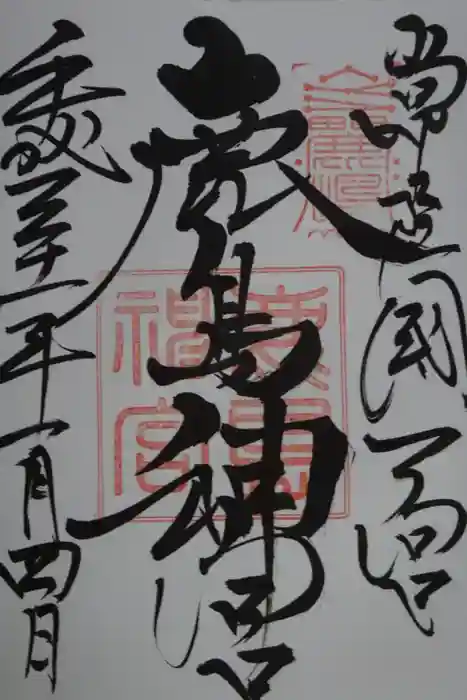 常陸国一宮
鹿島神宮
鹿島神宮
平成三十一年一月四日